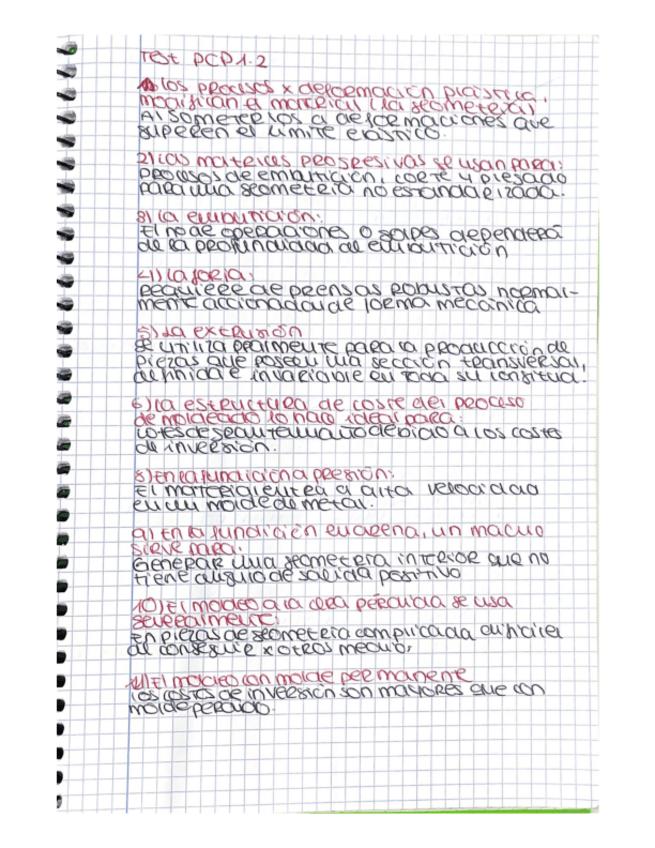 Test PCP1.2
1) Los procesos x deformación plástica,
modifican el material (la geometería)
Al someterlos a deformaciones que
superen el límite elástico.
2) Las matrices progresivas se usan para:
procesos de embutición, corte y plegado
para una geometería no estandarizada.
3) La embutición:
El nº de operaciones o golpes dependerá
de la profundidad de embutición
4) La forja:
Requiere de prensas robustas normal-
mente accionadas de forma mecánica
5) La extrusión
Se utiliza realmente para la producción de
piezas que poseen una sección transversal,
definida e invariable en toda su longitud.
6) La estructura de coste del proceso
de moldeado lo hace ideal para:
Lotes de gran tamaño debido a los costes
de inversión.
8) En la fundición a presión:
El material entra a alta velocidad
en un molde de metal.
9) En la fundición en arena, un macho
sirve para:
Generar una geometería interior que no
tiene ángulo de salida positivo
10) El moldeo a la cera perdida se usa
generalmente:
En piezas de geometería complicada difíciles
de conseguir x otros medios,
11) El moldeo con molde permanente
Los costes de inversión son mayores que con
molde perdido.